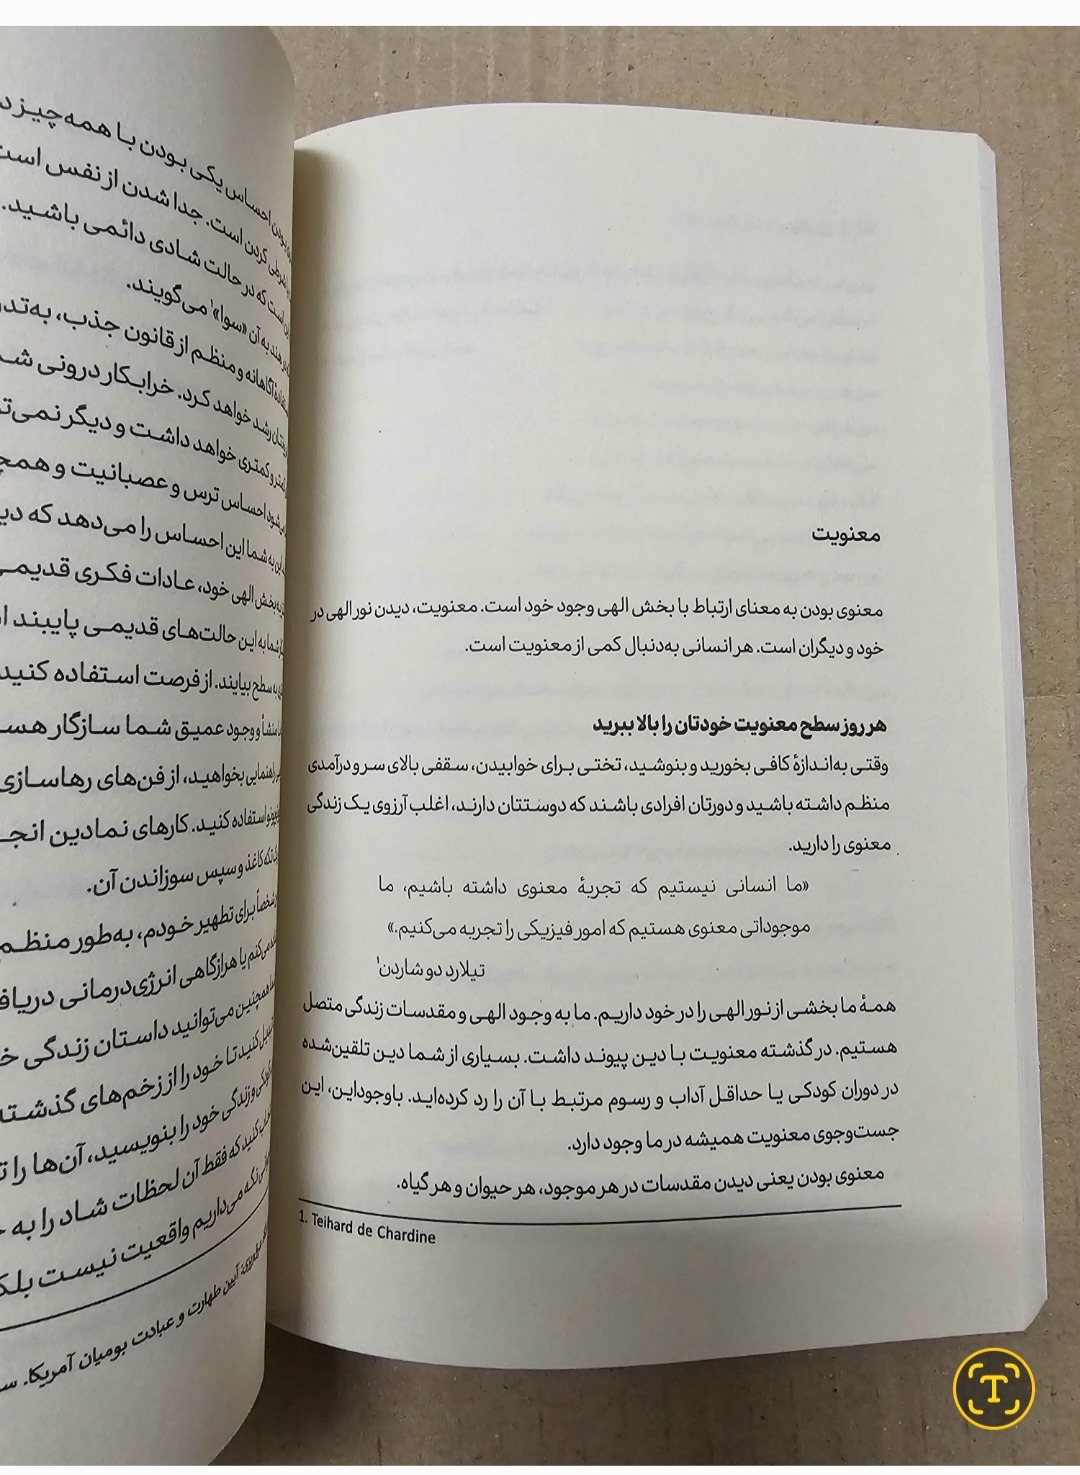 معنویت
معنوی بودن به معنای ارتباط با بخش الهی وجود خود است. معنویت، دیدن نور الهی در
خود و دیگران است. هر انسانی به‌دنبال کمی از معنویت است.
هر روز سطح معنویت خودتان را بالا ببرید
وقتی به‌اندازهٔ کافی بخورید و بنوشید، تختی برای خوابیدن، سقفی بالای سر و درآمدی
منظم داشته باشید و دورتان افرادی باشند که دوستتان دارند، اغلب آرزوی یک زندگی
معنوی را دارید.
«ما انسانی نیستیم که تجربهٔ معنوی داشته باشیم، ما
موجوداتی معنوی هستیم که امور فیزیکی را تجربه می‌کنیم.»
تیلارد دو شاردن¹
همهٔ ما بخشی از نور الهی را در خود داریم. ما به وجود الهی و مقدسات زندگی متصل
هستیم. در گذشته معنویت با دین پیوند داشت. بسیاری از شما دین تلقین‌شده
در دوران کودکی یا حداقل آداب و رسوم مرتبط با آن را رد کرده‌اید. باوجوداین، این
جست‌وجوی معنویت همیشه در ما وجود دارد.
معنوی بودن یعنی دیدن مقدسات در هر موجود، هر حیوان و هر گیاه.
1. Teihard de Chardine
بودن احساس یکی بودن با همه‌چیز
کردن است. جدا شدن از نفس است
است که در حالت شادی دائمی باشید.
هند به آن «سوا»¹ می‌گویند.
آگاهانه و منظم از قانون جذب، به‌تدر
رشد خواهد کرد. خرابکار درونی
کمتری خواهد داشت و دیگر نمی‌
احساس ترس و عصبانیت و
به شما این احساس را می‌دهد که
بخش الهی خود، عادات فکری قدیمی
شما به این حالت‌های قدیمی پایبند
به سطح بیایند. از فرصت استفاده کنید
منشأ و وجود عمیق شما سازگار
راهنمایی بخواهید، از فن‌های رهاسازی
استفاده کنید. کارهای نمادین
کاغذ و سپس سوزاندن آن.
شخصاً برای تطهیر خودم، به‌طور منظم
می‌کنم یا هرازگاهی انرژی‌درمانی
همچنین می‌توانید داستان زندگی
کنید تا خود را از زخم‌های گذشته
زندگی خود را بنویسید، آن‌ها را
کنید که فقط آن لحظات شاد را به
می‌داریم واقعیت نیست
آیین طهارت و عبادت بومیان آمریکا.